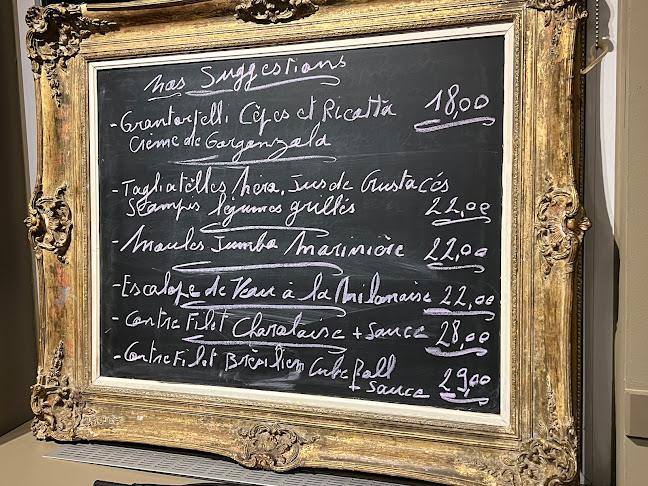 nos Suggestions
- Grantortelli Cèpes et Ricotta 18,00
Crème de Gorganzola
- Tagliatèlles Nera, Jus de Crustacés
Scampis légumes grillés 22,00
- Moules Jumbo Marinière 22,00
- Escalope de Veau à la Milanaise 22,00
- Contre Filet Charolaise + Sauce 28,00
- Contre Filet Brésilien Cube Roll
+ Sauce 29,00